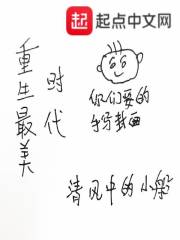 起
起点中文网
重生最美
时代
你们要的
手写封面
清风中的小船